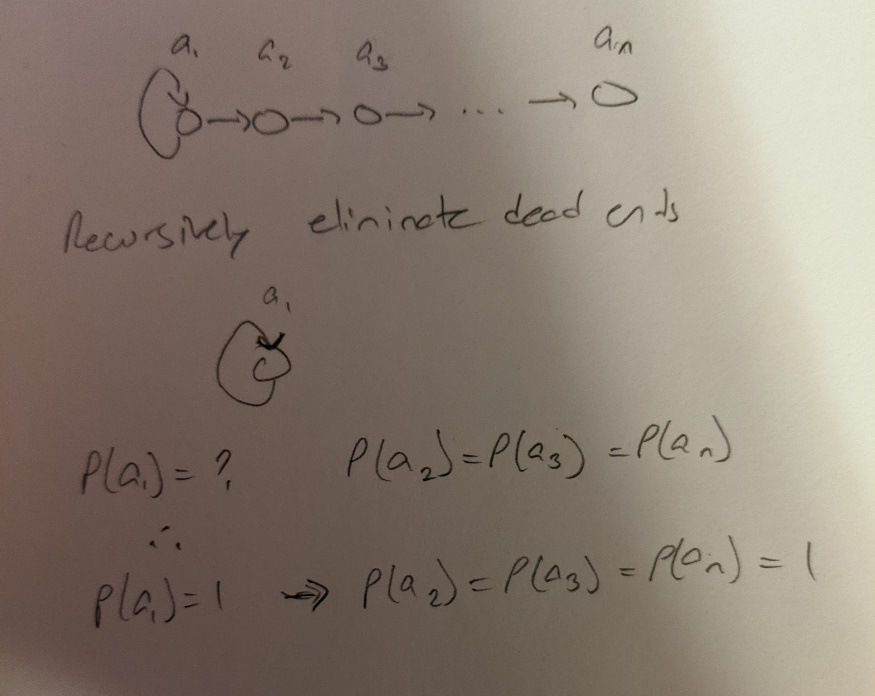 a₁ a₂ a₃ aₙ
→ → → ... →
Recursively eliminate dead ends
a₁
P(a₁) = ? P(a₂) = P(a₃) = P(aₙ)
∴
P(a₁) = 1 ⇒ P(a₂) = P(a₃) = P(aₙ) = 1